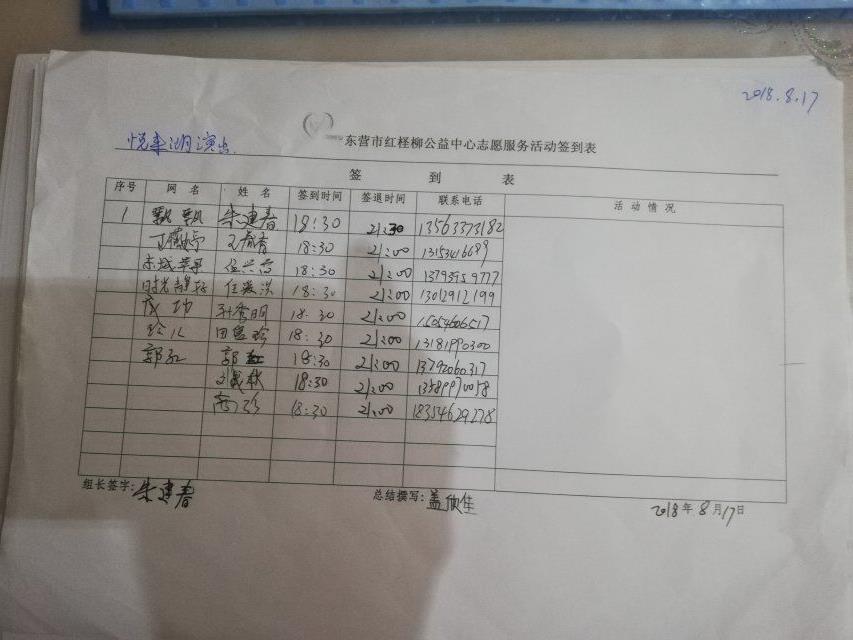 2018.8.17
悦来湖演出
东营市红柽柳公益中心志愿服务活动签到表
签到表
序号 网名 姓名 签到时间 签退时间 联系电话 活动情况
1 飘飘 朱建春 18:30 21:30 13563373182
18:30 21:00
18:30 21:00 13793959777
18:30 21:00 13012912199
成功 孙秀明 18:30 21:00 15054606517
玲儿 18:30 21:00 13181990300
郭红 郭红 18:30 21:00 13792060317
18:30 21:00 13589970058
18:30 21:00 18354629278
组长签字:朱建春 总结撰写:盖欣佳 2018年8月17日